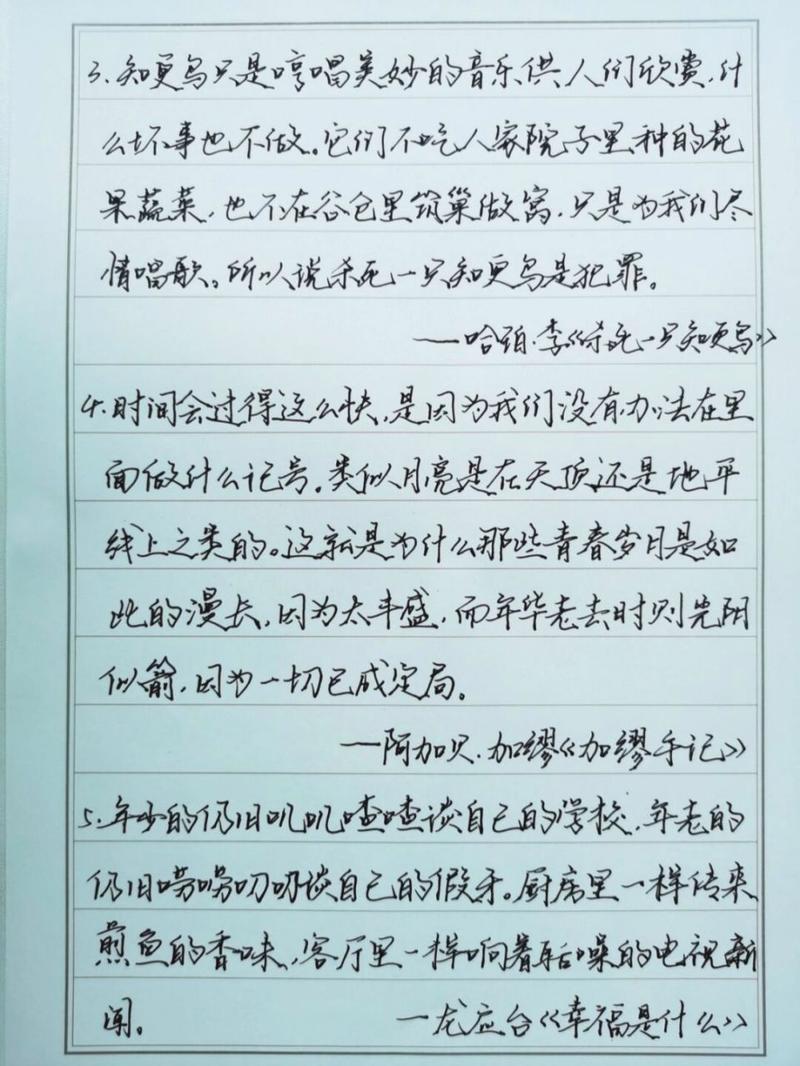 3.知更鸟只是哼唱美妙的音乐供人们欣赏,什
么坏事也不做。它们不吃人家院子里种的花
果蔬菜,也不在谷仓里筑巢做窝,只是为我们尽
情唱歌。所以说杀死一只知更鸟是犯罪。
——哈珀·李《杀死一只知更鸟》
4.时间会过得这么快,是因为我们没有办法在里
面做什么记号。类似月亮是在天顶还是地平
线上之类的。这就是为什么那些青春岁月是如
此的漫长,因为太丰盛,而年华老去时则光阴
似箭,因为一切已成定局。
——阿加贝·加缪《加缪手记》
5.年少的仍旧叽叽喳喳谈自己的学校,年老的
仍旧唠唠叨叨谈自己的假牙。厨房里一样传来
煎鱼的香味,客厅里一样响着聒噪的电视新
闻。 ——龙应台《幸福是什么》